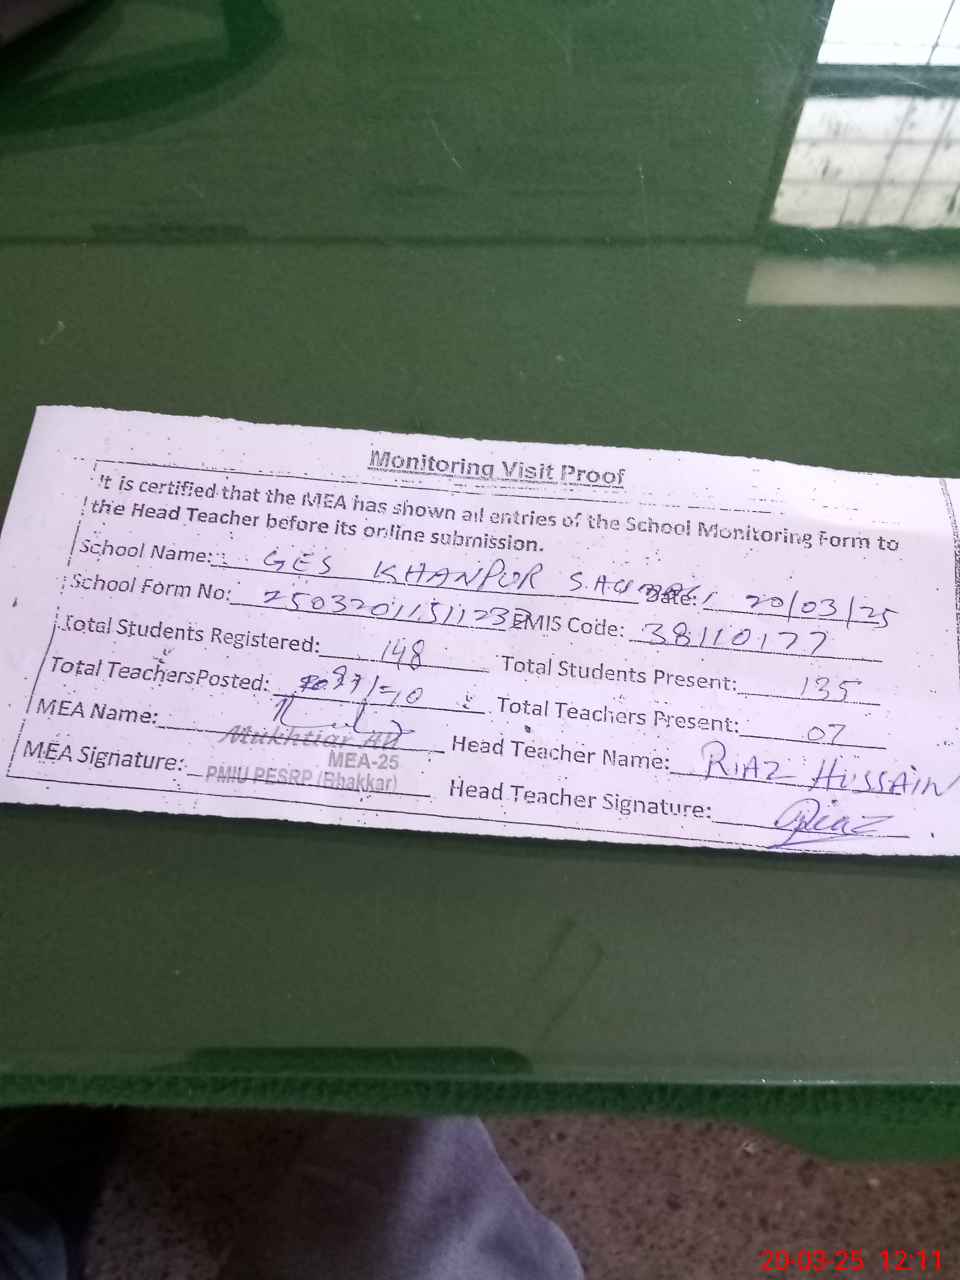 Monitoring Visit Proof
It is certified that the MEA has shown all entries of the School Monitoring Form to
the Head Teacher before its online submission.
School Name: GES KHANPUR Date: 20/03/25
School Form No: EMIS Code: 38110177
Total Students Registered: 148 Total Students Present: 135
Total TeachersPosted: Total Teachers Present: 07
MEA Name: Mukhtiar Head Teacher Name: RIAZ HUSSAIN
MEA-25
MEA Signature: PMIU PESRP (Bhakkar) Head Teacher Signature: Riaz
20-03-25 12:11